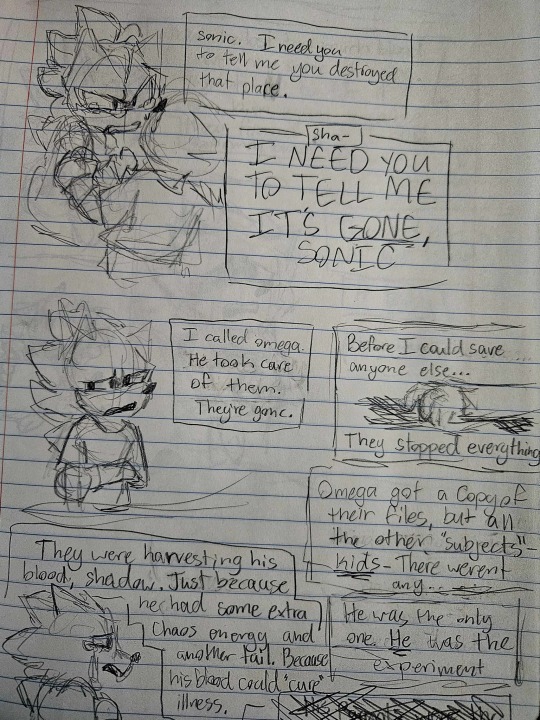 sonic. I need you
to tell me you destroyed
that place.
Sha-
I NEED YOU
TO TELL ME
IT'S GONE,
SONIC
I called omega.
He took care
of them.
They're gone.
Before I could save
anyone else...
They stopped everything
Omega got a copy of
their files, but all
the other "subjects"-
kids- There weren't
any...
They were harvesting his
blood, shadow. Just because
he had some extra
Chaos energy and
another tail. Because
his blood could "cure"
illness.
He was the only
one. He was the
experiment